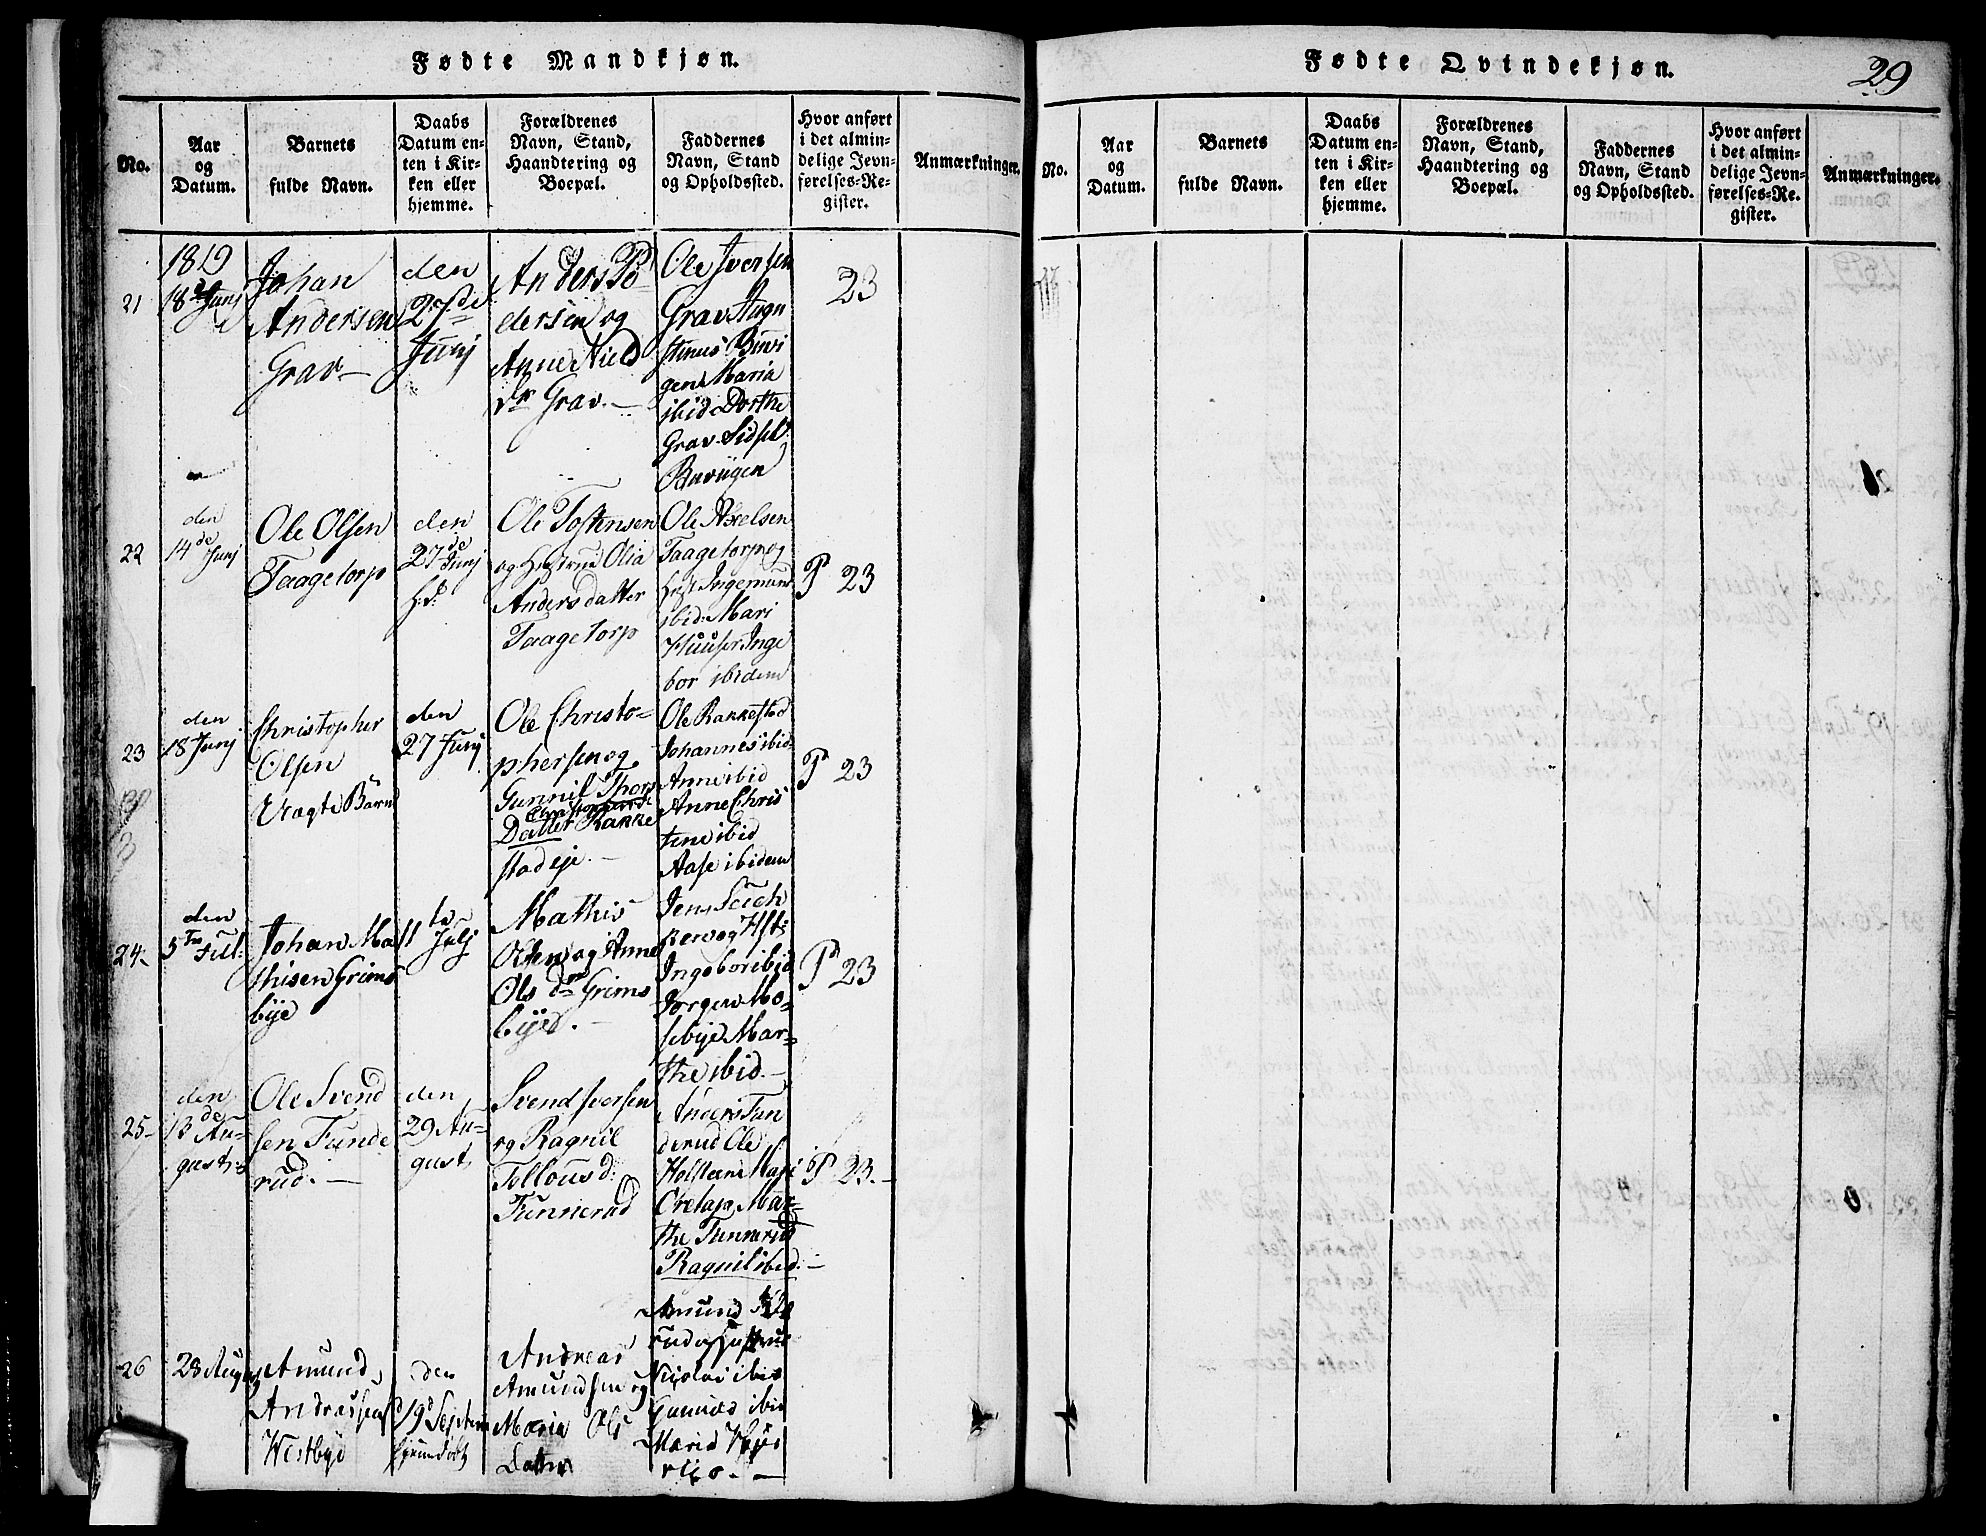 Fødte Mandkjøn.
No.
Aar
og
Datum.
Barnets
fulde Navn.
Daabs
Datum en-
ten i Kir-
ken eller
hjemme.
Forældrenes
Navn, Stand,
Haandtering og
Boepæl.
Faddernes
Navn, Stand
og Opholdssted.
Hvor anført
i det almin-
delige Jevn-
førelses-Re-
gister.
Anmærkninger.
21
1819
18de Junj
Johan
Andersen
Grav
den
27de
Junj
Anders Pe
dersen og
Anne Niels
dr Grav.
Ole Iversen
Grav Augu
stinus
gen Maria
ibid Dorthe
Grav Sidsel
23
22
den
14de
Junj
Ole Olsen
Taagetorp
den
27de
Junj
h:d:
Ole Tostensen
og Hustrue Olia
Andersdatter
Taagetorp
Ole Axelsen
Taagetorp og
Hust Ingemund
ibid: Mari
Huuser Inge
bor ibidem
P 23
23
den
18 Junj
Christopher
Olsen
Vagte Barn
den
27 Junj
Ole Christo-
phersen og
Gunnil Thors
Datter Rakke
stad eje.
Ole Rakkestad
Johannes ibid
Anne ibid
Anne Chris
tine ibid
Aase ibidem
P 23
24-
den
5te Jul:
Johan Ma
thisen Grims
bye
11te
Julj
Mathis
Olsen og Anne
Ols dr Grims
bye.
Jens
Ingebor ibid
Jørgen Mo-
sebye Mar-
the ibid.
P 23
25-
den
13de Au-
gust
Ole Svend
sen Tunde
rud.
den
29 Au-
gust
Svend Iversen
og Ragnil
Tollous d:
Tunnerud
Anders Tun
derud Ole
Holsteen Mari
Mar-
the Tunnerud
Ragnil ibid:
P 23.
26
28 August
Amund
Andreassen
Westbye
den
19de Septem
Andreas
Amundsen og
Maria Ols
Datter
Amund
rud og Hustrue
Nicolai ibid
Gunnild ibid
Maria
Fødte Qvindekjøn.
29
No.
Aar
og
Datum.
Barnets
fulde Navn.
Daabs
Datum en-
ten i Kir-
ken eller
hjemme.
Forældrenes
Navn, Stand,
Haandtering og
Boepæl.
Faddernes
Navn, Stand
og Opholdssted.
Hvor anført
i det almin-
delige Jevn-
førelses-Re-
gister.
Anmærkninger.